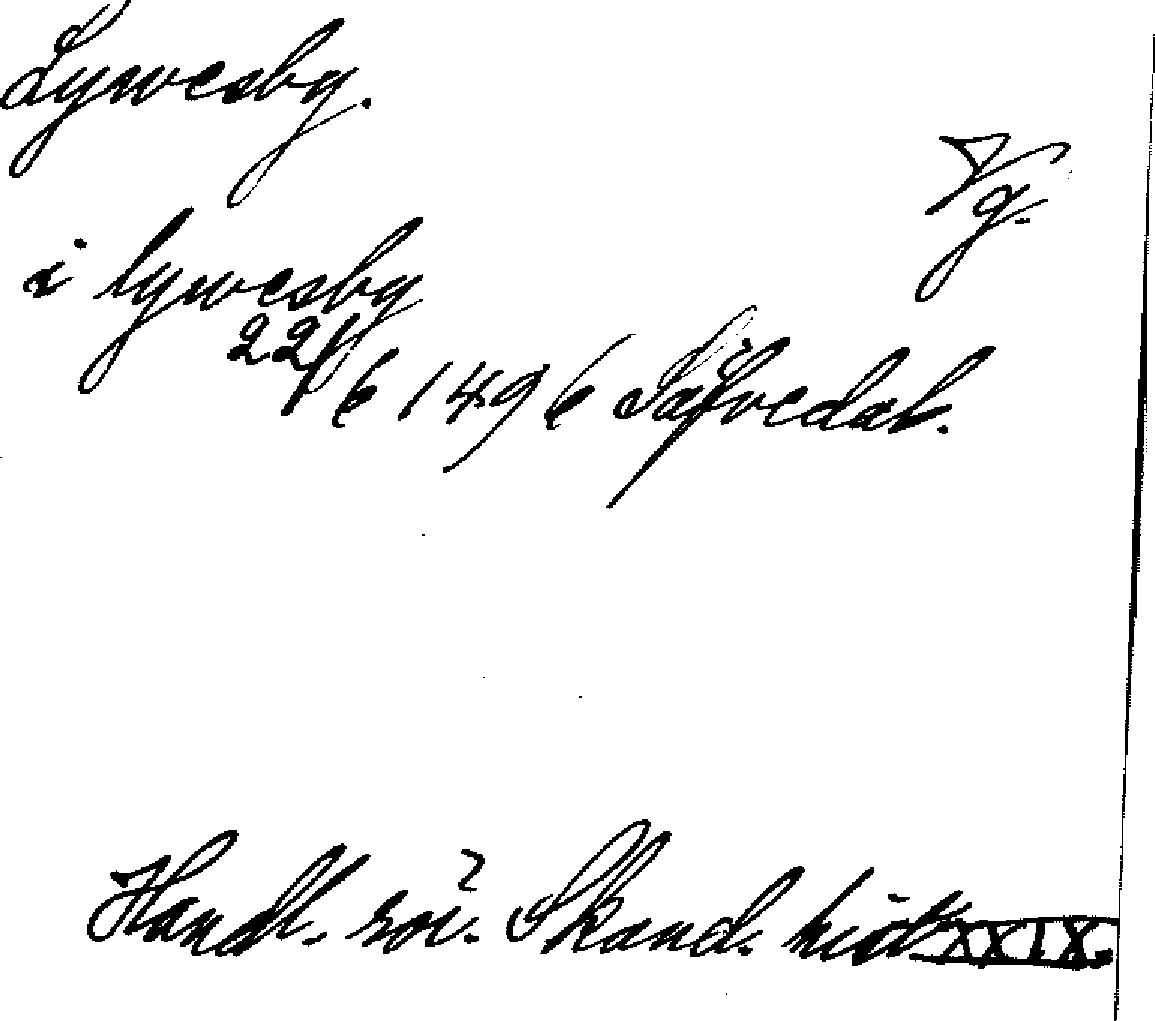 Lywesby.
Vg.
i lywesby
22/6 1496 Säfvedal.
Handl. rör. Skand. hist. XXIX.